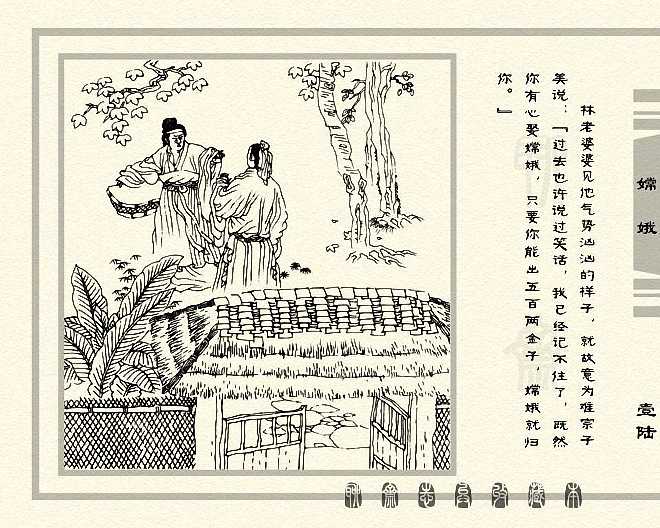 嫦娥
壹陆
林老婆婆见他气势汹汹的样子，就故意为难宗子
美说：『过去也许说过笑话，我已经记不住了，既然
你有心娶嫦娥，只要你能出五百两金子，嫦娥就归
你。』
聊斋志异收藏本